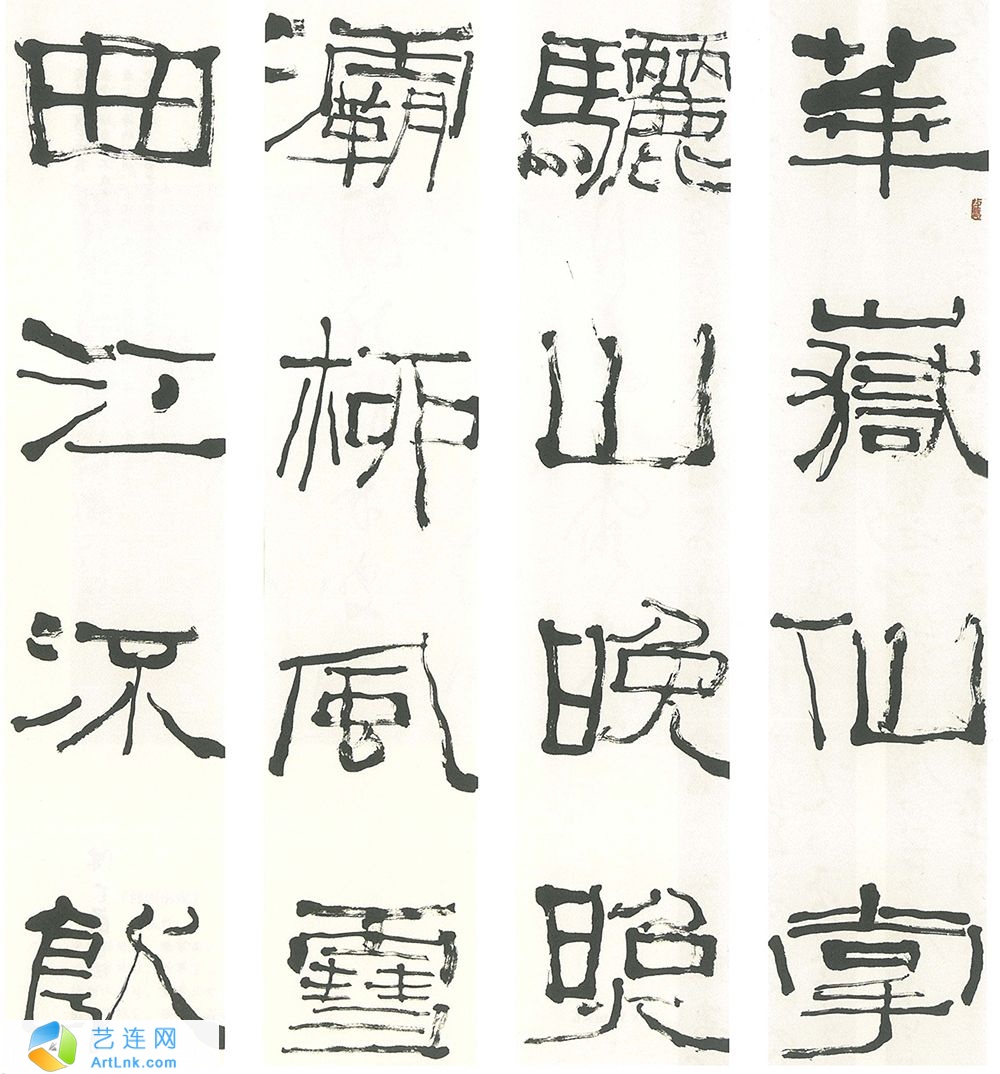 華嶽仙掌
驪山晚照
灞柳風雪
曲江流飲
艺连网
ArtLnk.com